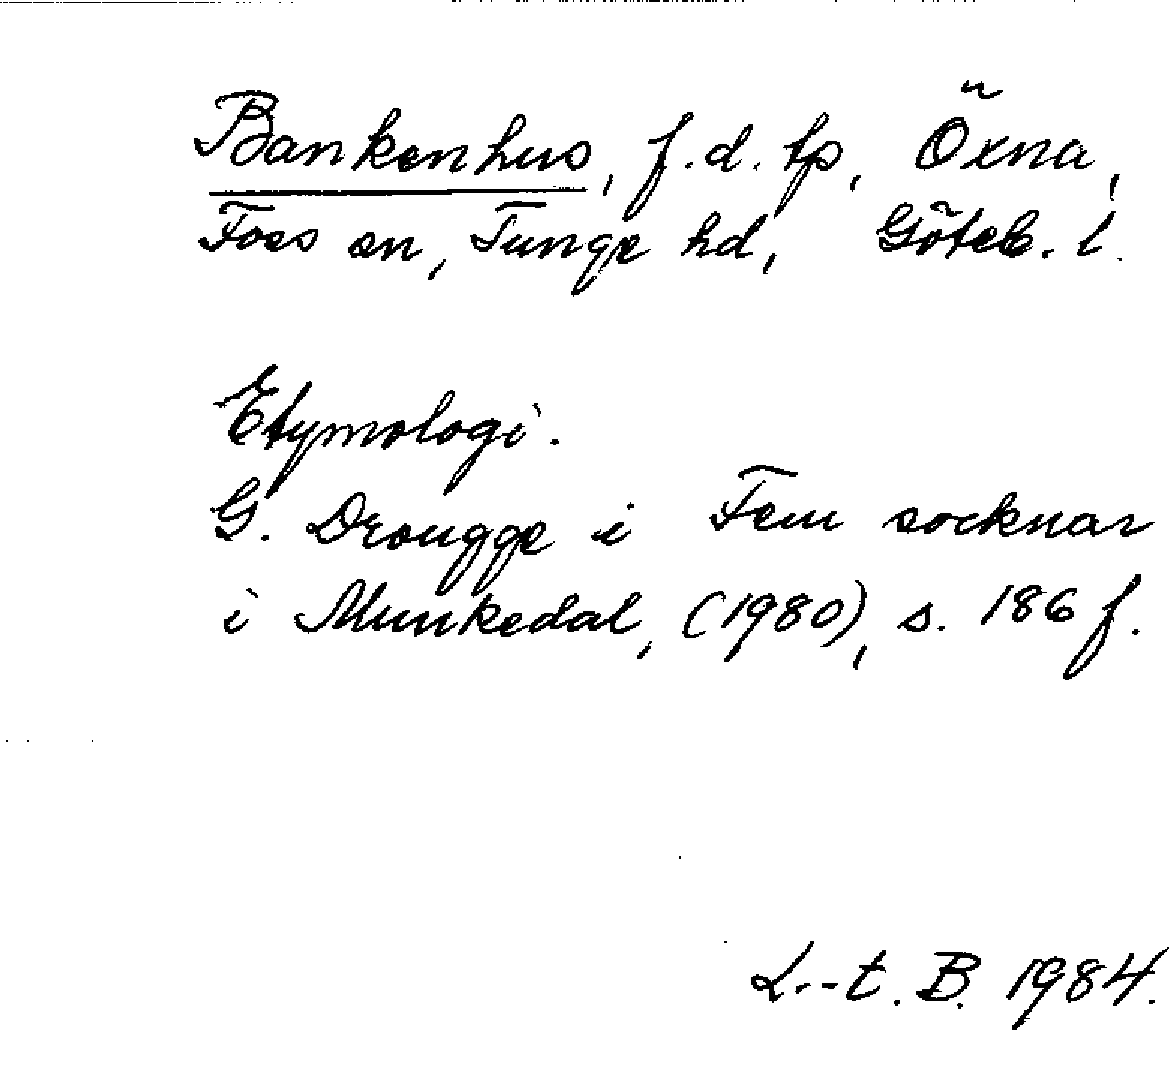 Bankenhus, f.d. tp, Öxna,
Foss sn, Tunge hd, Göteb. l.
Etymologi.
G. Drougge i Fem socknar
i Munkedal, (1980), s. 186 f.
L.-t. B. 1984.